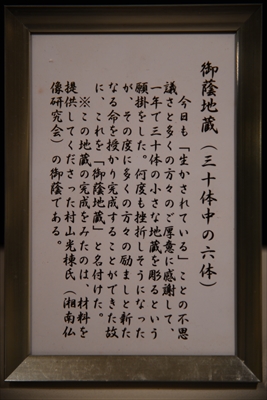 御蔭地蔵（三十体中の六体）
今日も「生かされている」ことの不思
議さと多くの方々のご厚意に感謝して、
一年で三十体の小さな地蔵を彫るという
願掛をした。何度も挫折しそうになった
が、その度に多くの方々の励ましと新た
なる命を授かり完成することができた故
に、これを「御蔭地蔵」と名付けた。
※この地蔵の完成をみたのは、材料を
提供してくださった村山光棟氏（湘南仏
像研究会）の御蔭である。